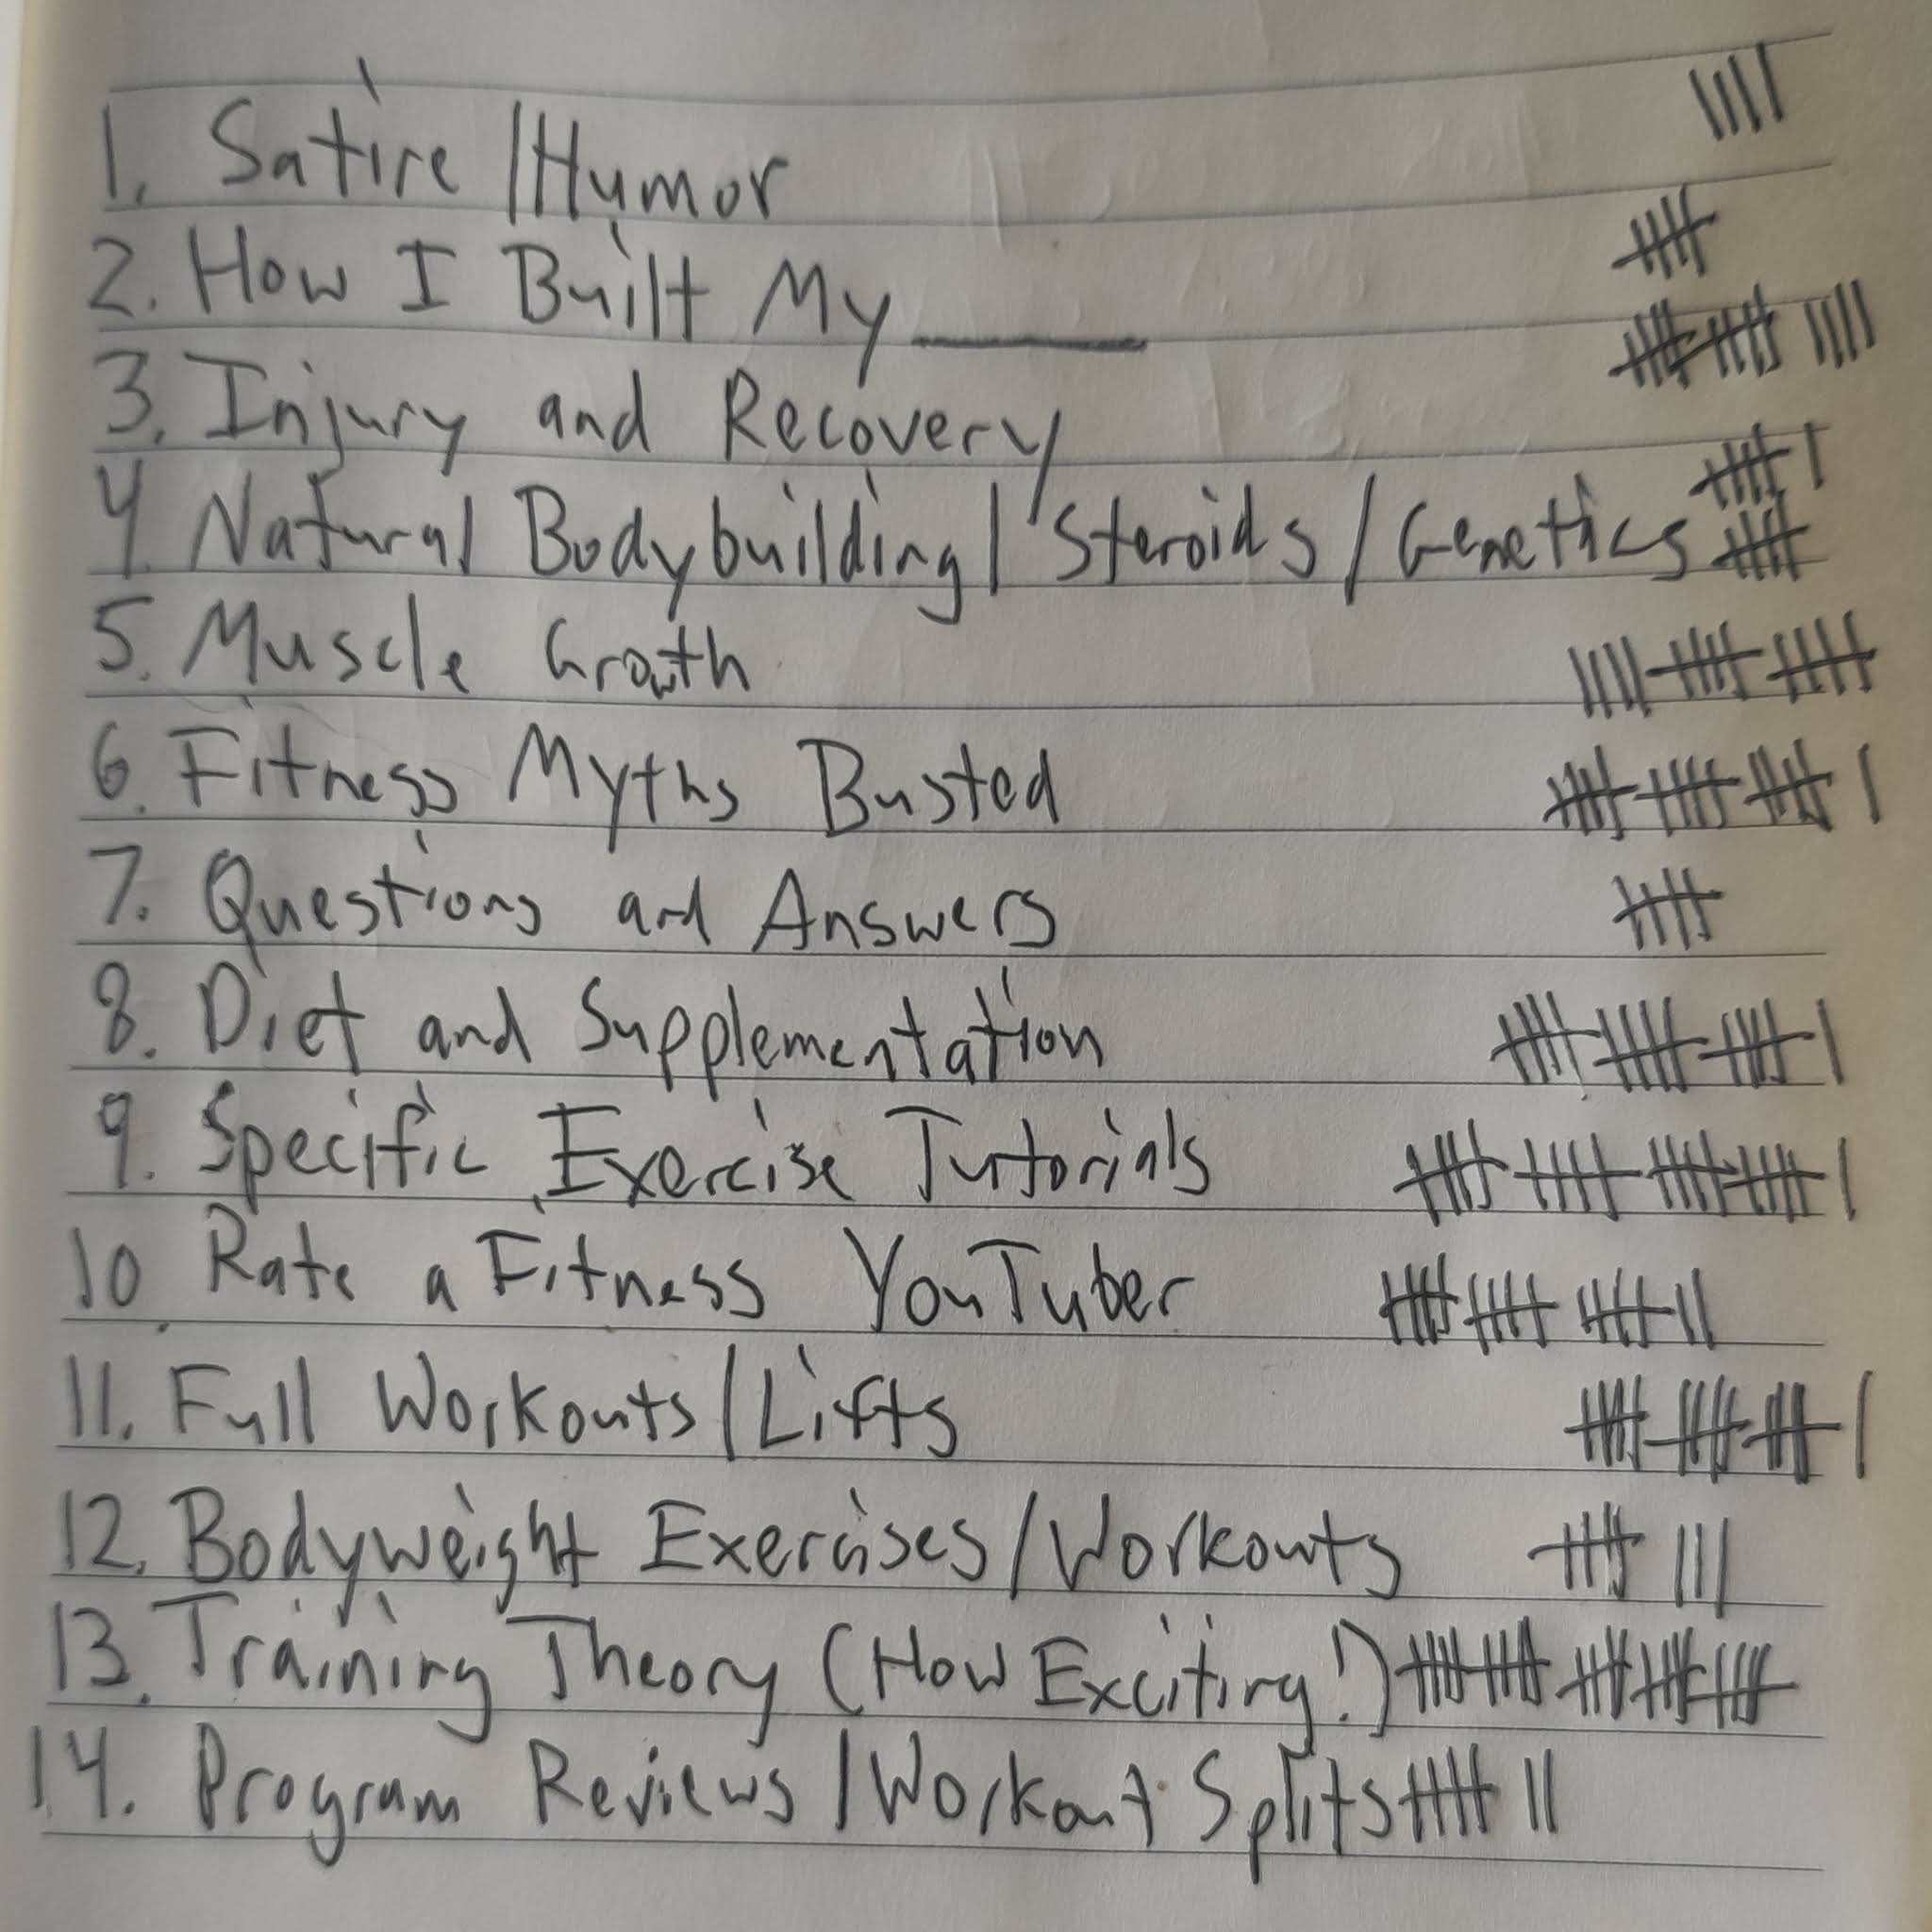 1. Satire/Humor ||||
2. How I Built My ____ 卌
3. Injury and Recovery 卌 卌 ||||
4. Natural Bodybuilding/Steroids/Genetics 卌 | 卌
5. Muscle Growth |||| 卌 卌
6. Fitness Myths Busted 卌 卌 卌 |
7. Questions and Answers 卌
8. Diet and Supplementation 卌 卌 卌 |
9. Specific Exercise Tutorials 卌 卌 卌 卌 |
10. Rate a Fitness YouTuber 卌 卌 卌 ||
11. Full Workouts/Lifts 卌 卌 卌 |
12. Bodyweight Exercises/Workouts 卌 |||
13. Training Theory (How Exciting!) 卌 卌 卌 卌 卌
14. Program Reviews/Workout Splits 卌 ||